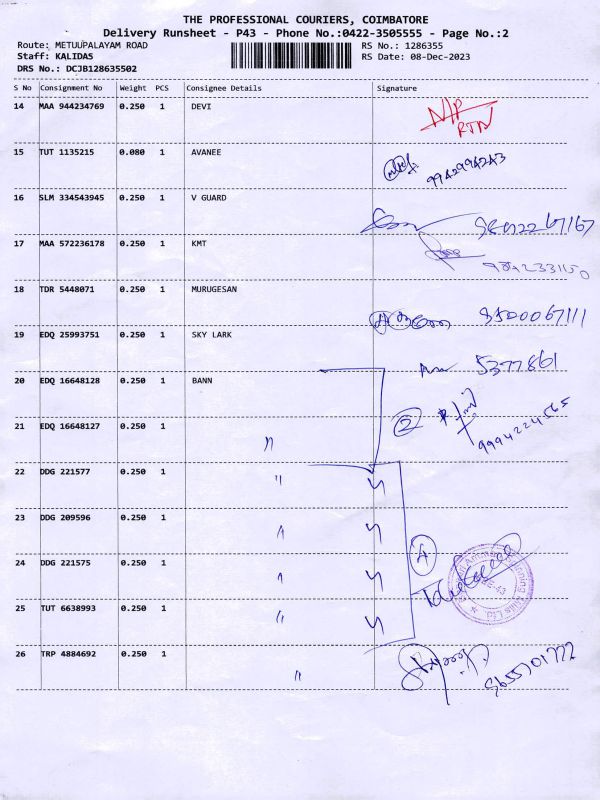 THE PROFESSIONAL COURIERS, COIMBATORE
Delivery Runsheet - P43 - Phone No.:0422-3505555 - Page No.:2
Route: METUUPALAYAM ROAD RS No.: 1286355
Staff: KALIDAS RS Date: 08-Dec-2023
DRS No.: DCJB128635502
S No Consignment No Weight PCS Consignee Details Signature
14 MAA 944234769 0.250 1 DEVI
RTN
15 TUT 1135215 0.080 1 AVANEE
9942994243
16 SLM 334543945 0.250 1 V GUARD
17 MAA 572236178 0.250 1 KMT
9892331150
18 TDR 5448071 0.250 1 MURUGESAN
8500067111
19 EDQ 25993751 0.250 1 SKY LARK
5377861
20 EDQ 16648128 0.250 1 BANN
2
9994224565
21 EDQ 16648127 0.250 1 "
22 DDG 221577 0.250 1 "
23 DDG 209596 0.250 1 "
24 DDG 221575 0.250 1 "
4
25 TUT 6638993 0.250 1 "
26 TRP 4884692 0.250 1 "
9655701772